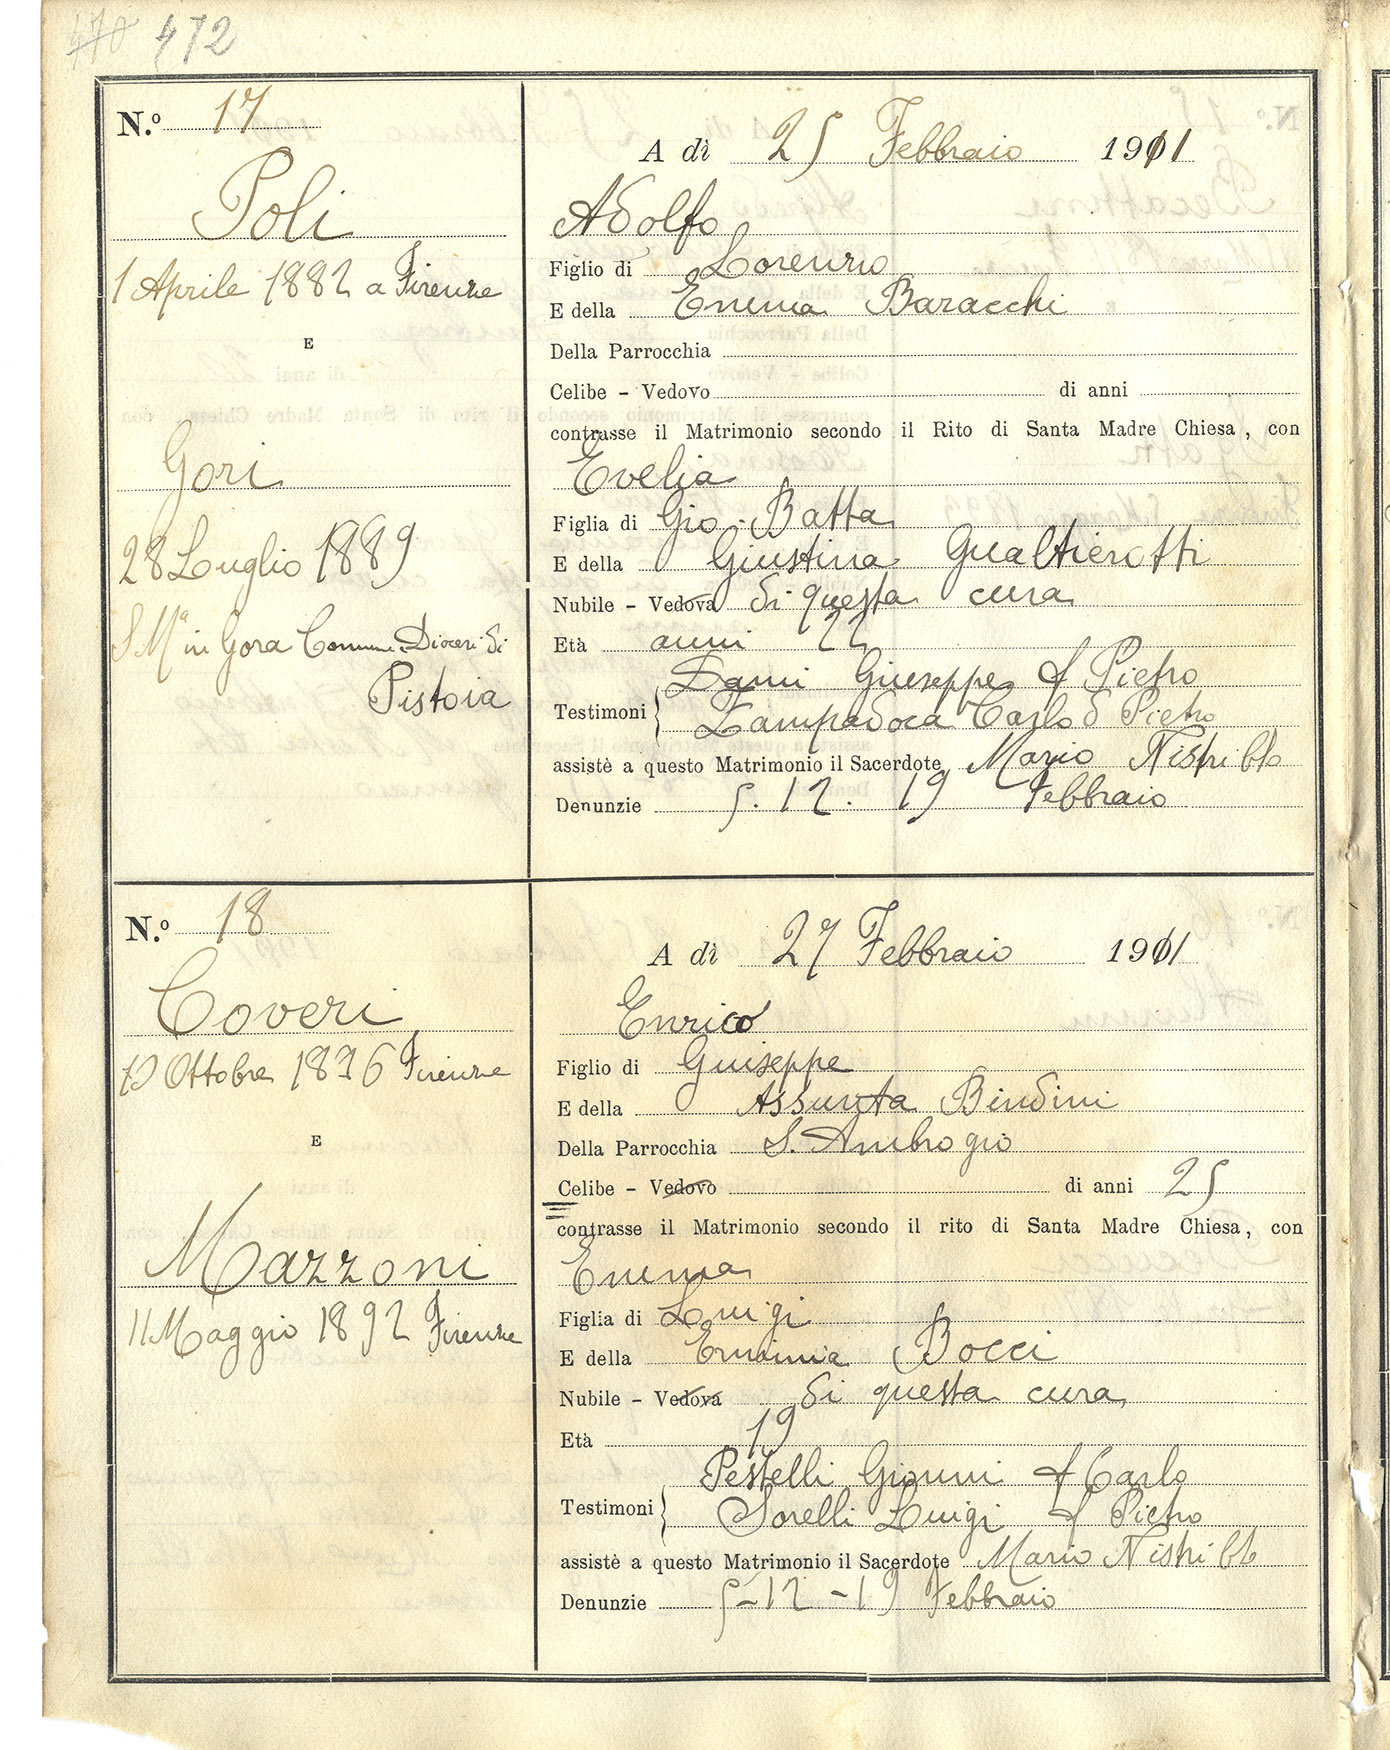 470 472
N.o 17
Poli
1 Aprile 1882 a Firenze
E
Gori
28 Luglio 1889
S Ma in Gora Comune Diocesi di
Pistoia
A dì 25 Febbraio 1911
Adolfo
Figlio di Lorenzo
E della Emma Baracchi
Della Parrocchia
Celibe - Vedovo di anni
contrasse il Matrimonio secondo il Rito di Santa Madre Chiesa, con
Evelia
Figlia di Gio. Batta
E della Giustina Gualtierotti
Nubile - Vedova di questa cura
Età anni 22
Testimoni Dami Giuseppe f Pietro
Lampadoca Carlo d Pietro
assistè a questo Matrimonio il Sacerdote Mario Nistri
Denunzie 5. 12. 19 Febbraio
N.o 18
Coveri
Ottobre Firenze
E
Mazzoni
11 Maggio 1892 Firenze
A dì 27 Febbraio 1911
Enrico
Figlio di Guiseppe
E della Assunta Bindini
Della Parrocchia S. Ambrogio
Celibe - Vedovo di anni 25
contrasse il Matrimonio secondo il rito di Santa Madre Chiesa, con
Emma
Figlia di Luigi
E della Erminia Bocci
Nubile - Vedova di questa cura
Età 19
Testimoni Pestelli Gionni f Carlo
Sorelli Luigi f Pietro
assistè a questo Matrimonio il Sacerdote Mario Nistri
Denunzie 5-12-19 Febbraio